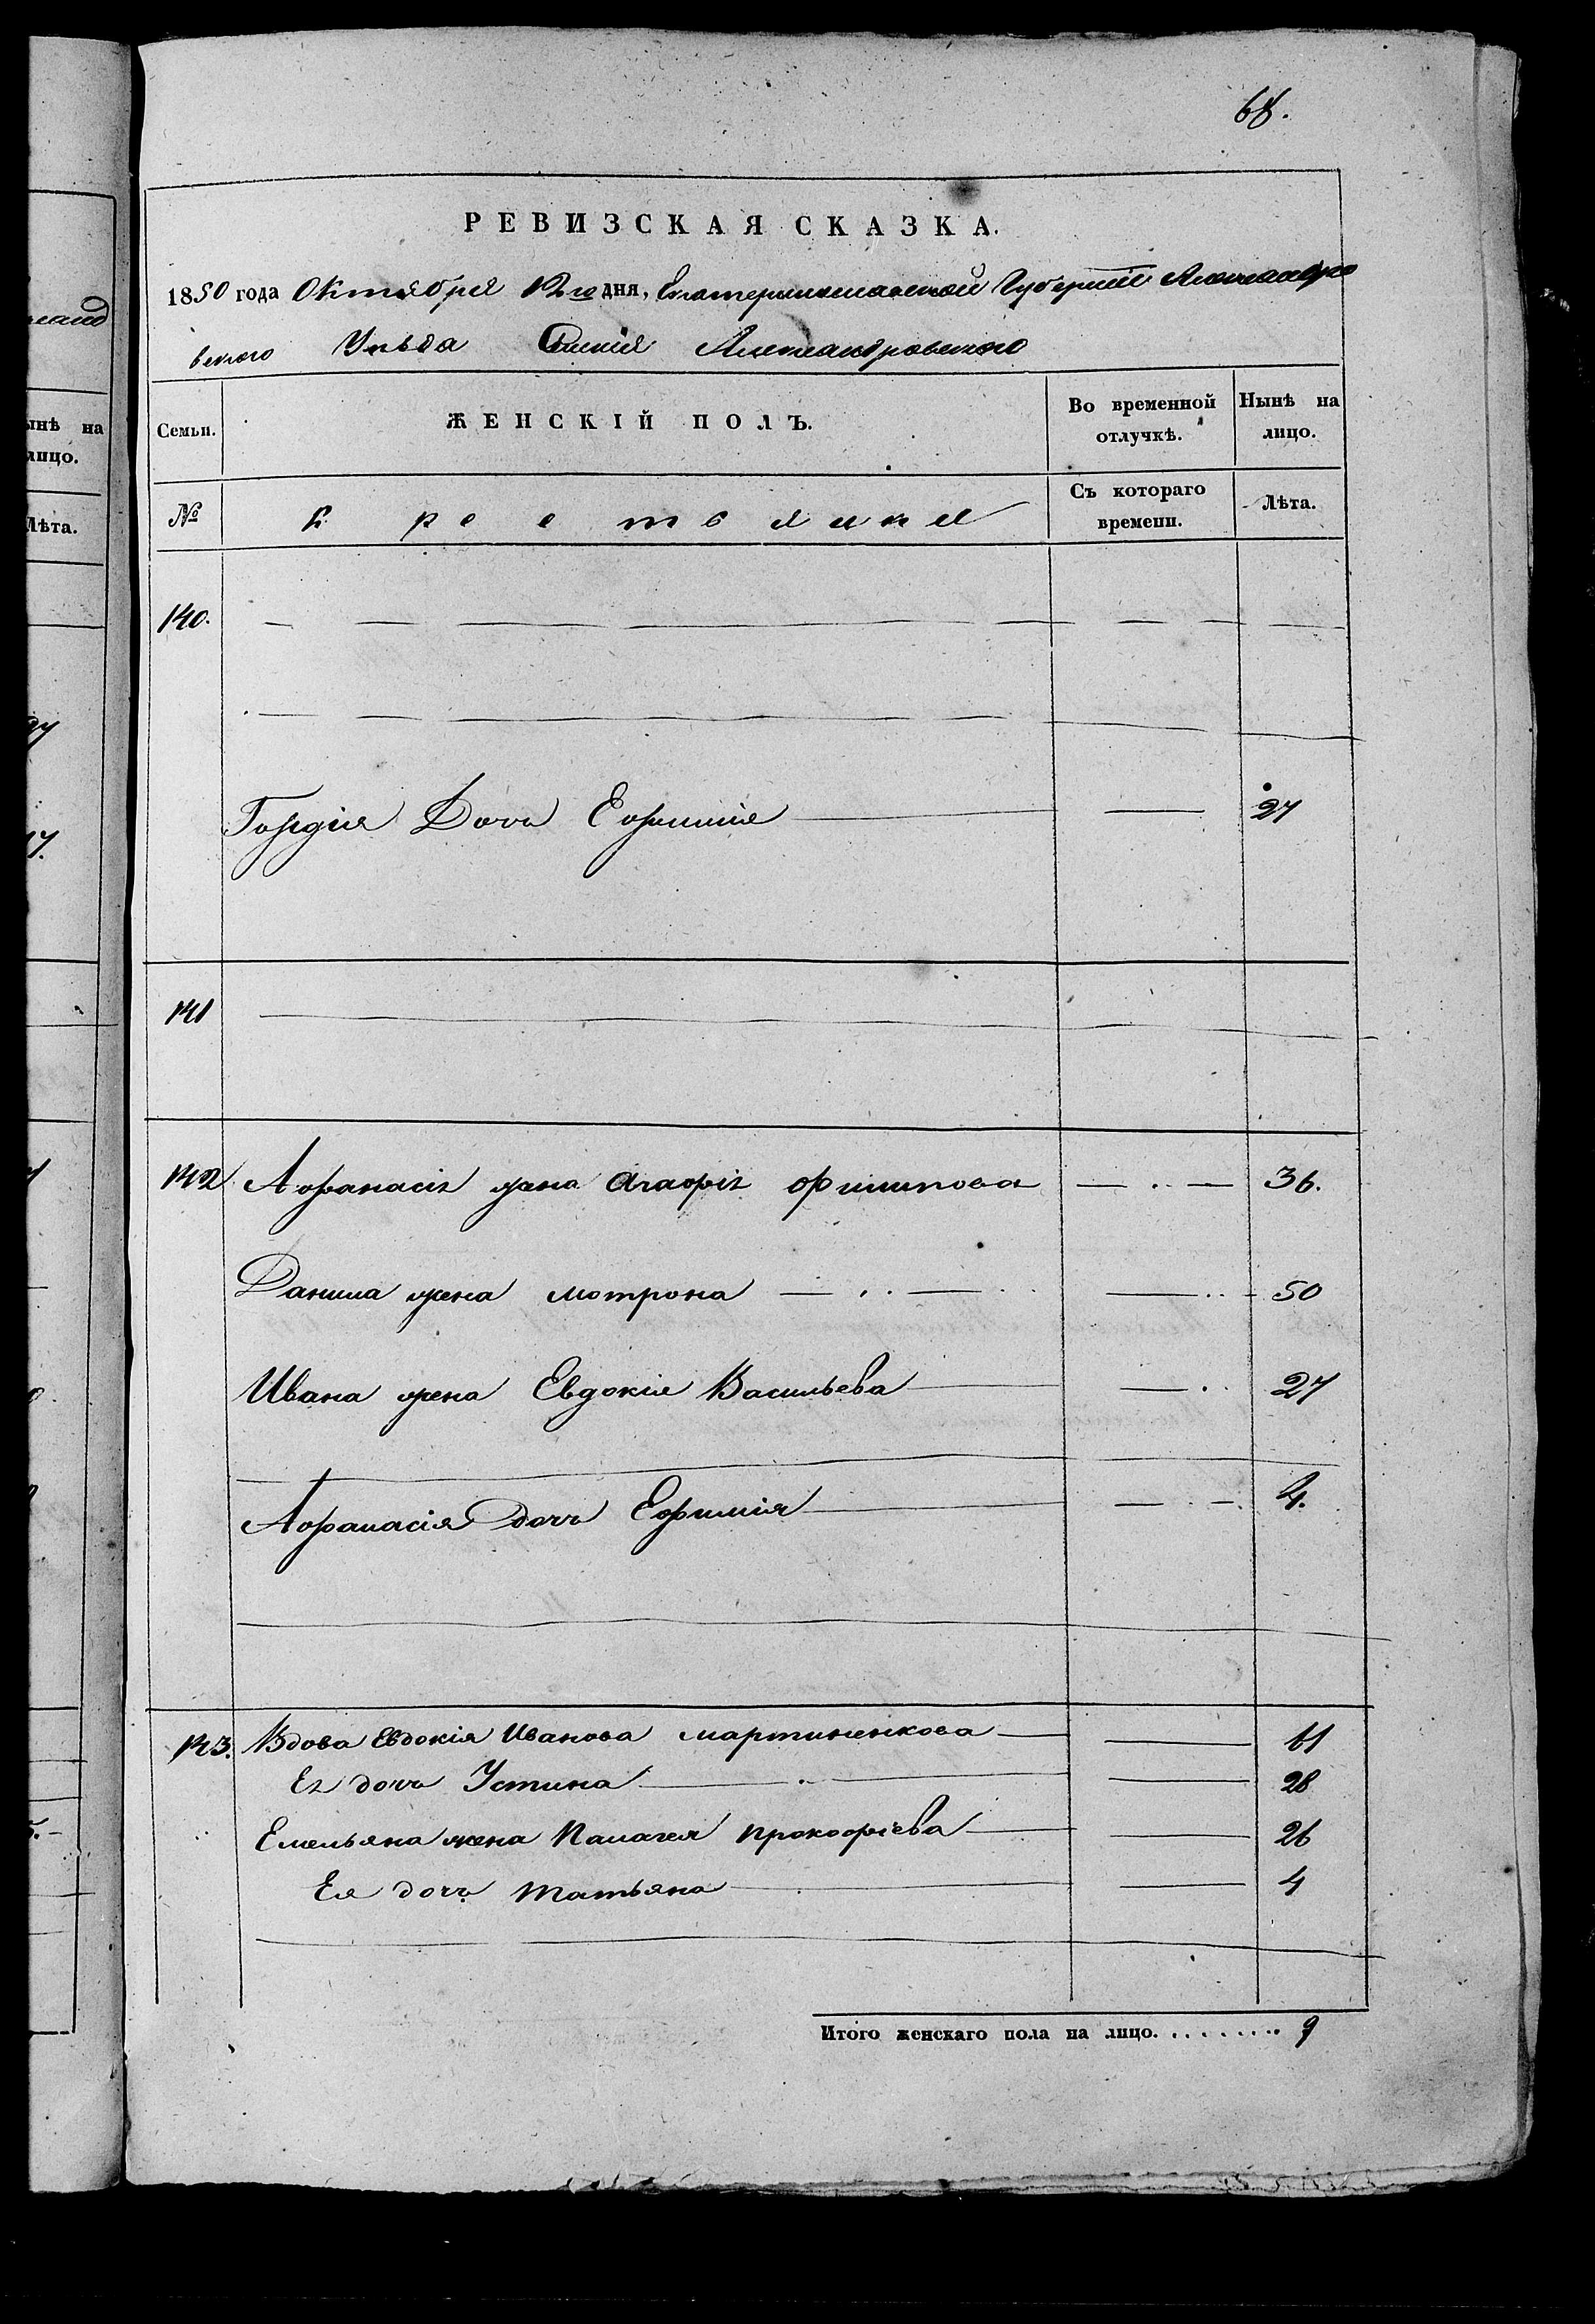 68.
РЕВИЗСКАЯ СКАЗКА.
1850 года Октября 12го дня, Екатеринославской Губерніи Александро
вского Уезда Селенія Александровского
Семьи. ЖЕНСКІЙ ПОЛЪ. Во временной отлучкѣ. Нынѣ на лицо.
№ Крестьянка Съ котораго времени. Лѣта.
140.
Гордія Дочь Ефимія 27
141
142 Афанасія жена Агафія Филипова 36.
Данила жена Мотрона 50
Ивана жена Евдокія Васильева 27
Афанасія дочь Ефимія 4.
143. Вдова Евдокія Иванова Мартиненкова 61
Ея дочь Устина 28
Емельяна жена Палагея Прокофіева 26
Ея дочь Татьяна 4
Итого женскаго пола на лицо. 9
ынѣ на
лицо.
Лѣта.